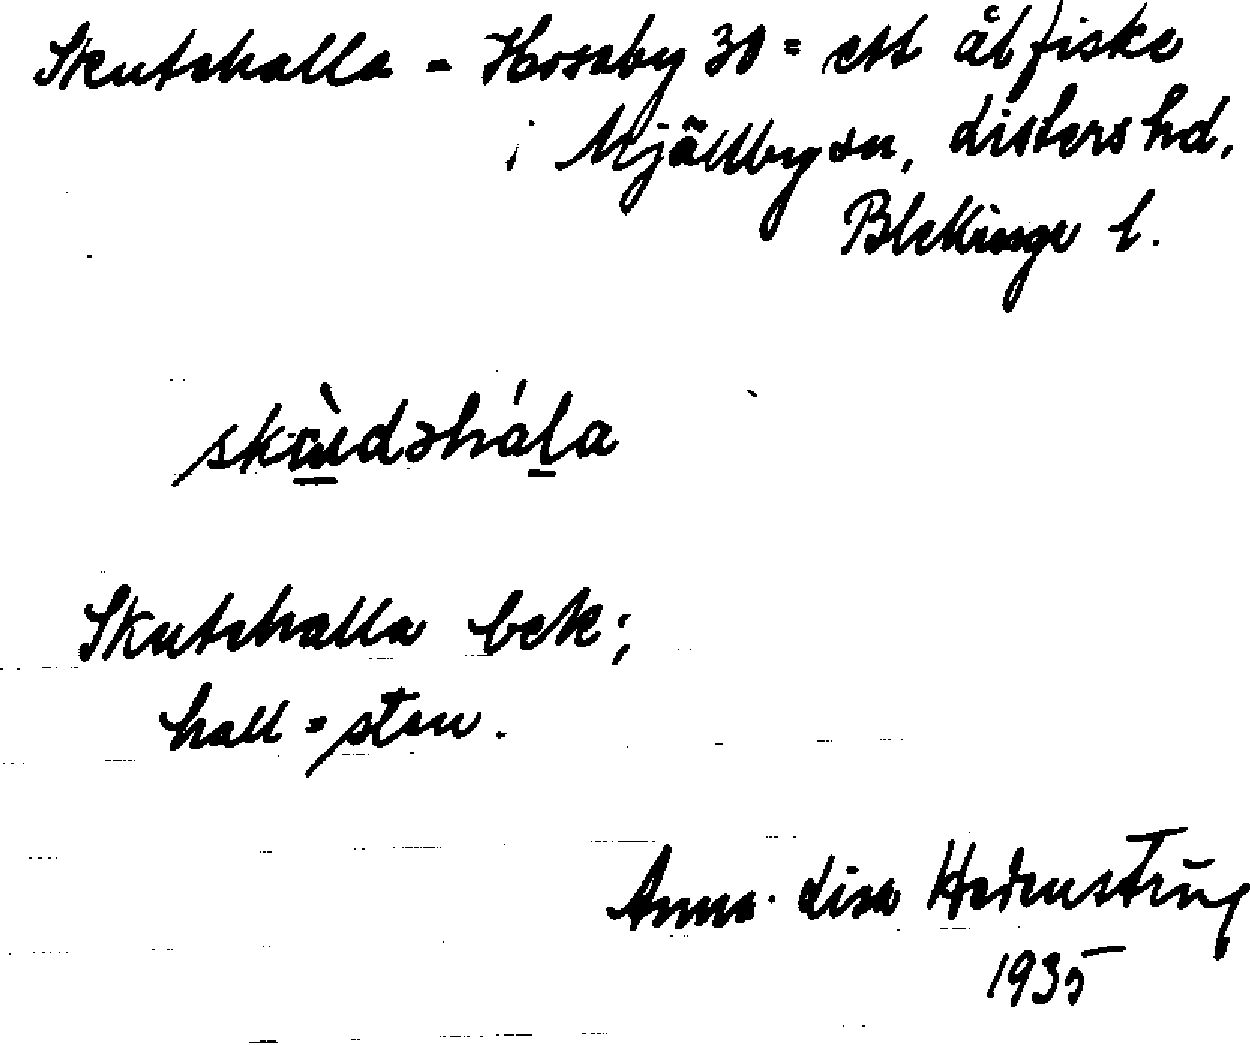 Skutehalla - Hosaby 30 = ett ålfiske
i Mjällby sn, Listers hd,
Blekinge l.
skùdəhála
Skutehalla bek;
hall = sten.
Anna-Lisa
1935